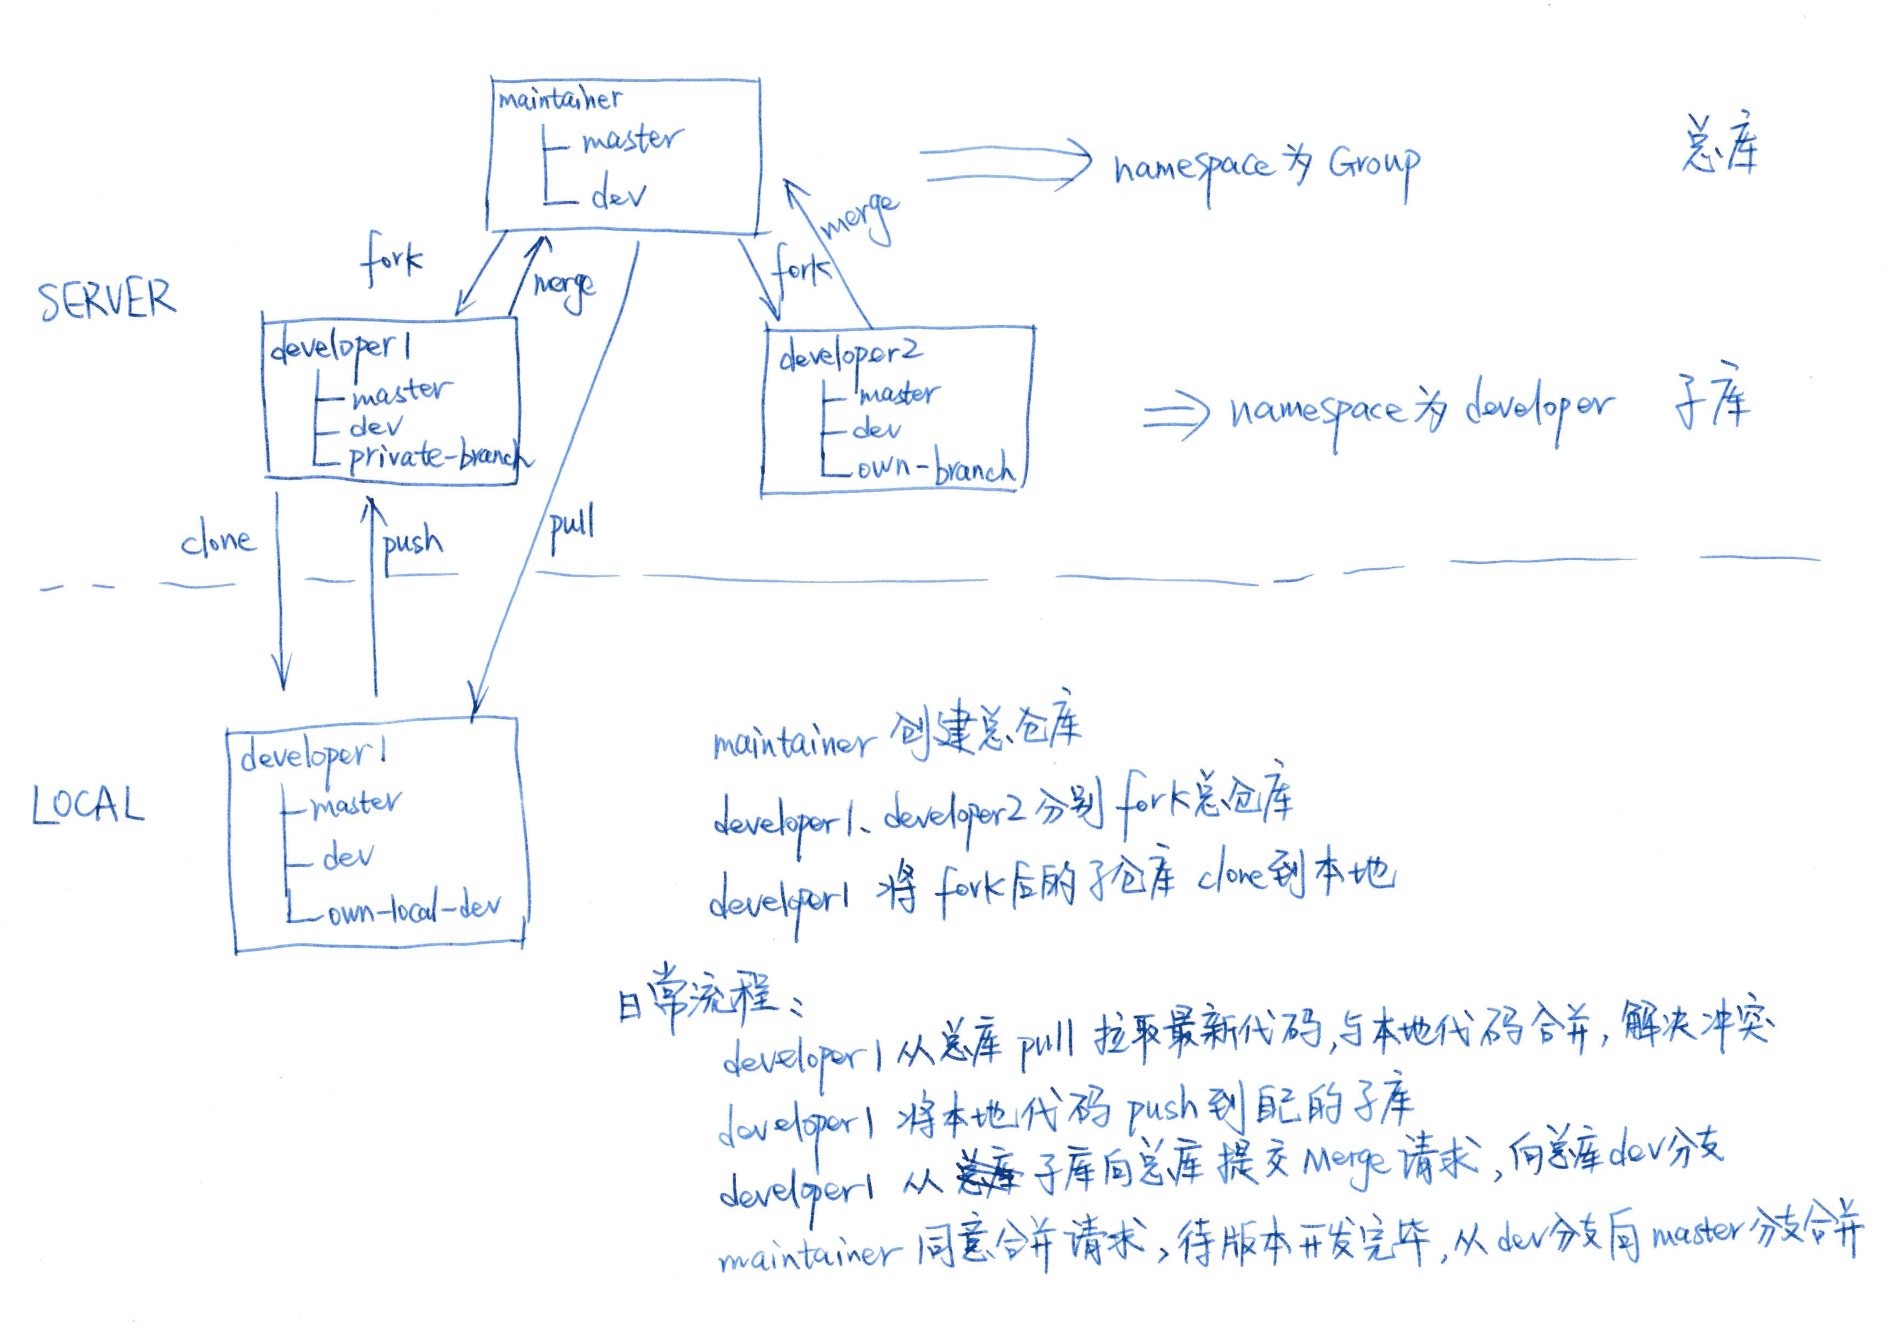 maintainer
master
dev
namespace为 Group
总库
fork
merge
fork
merge
SERVER
developer1
master
dev
private-branch
developer2
master
dev
own-branch
namespace为 developer
子库
clone
push
pull
LOCAL
developer1
master
dev
own-local-dev
maintainer 创建总仓库
developer1、developer2 分别 fork总仓库
developer1 将 fork后的子仓库 clone到本地
日常流程：
developer1 从总库 pull 拉取最新代码,与本地代码合并, 解决冲突
developer1 将本地代码 push 到自己的子库
developer1 从 子库向总库 提交 Merge 请求, 向总库dev分支
maintainer 同意合并请求, 待版本开发完毕, 从 dev分支向 master 分支合并